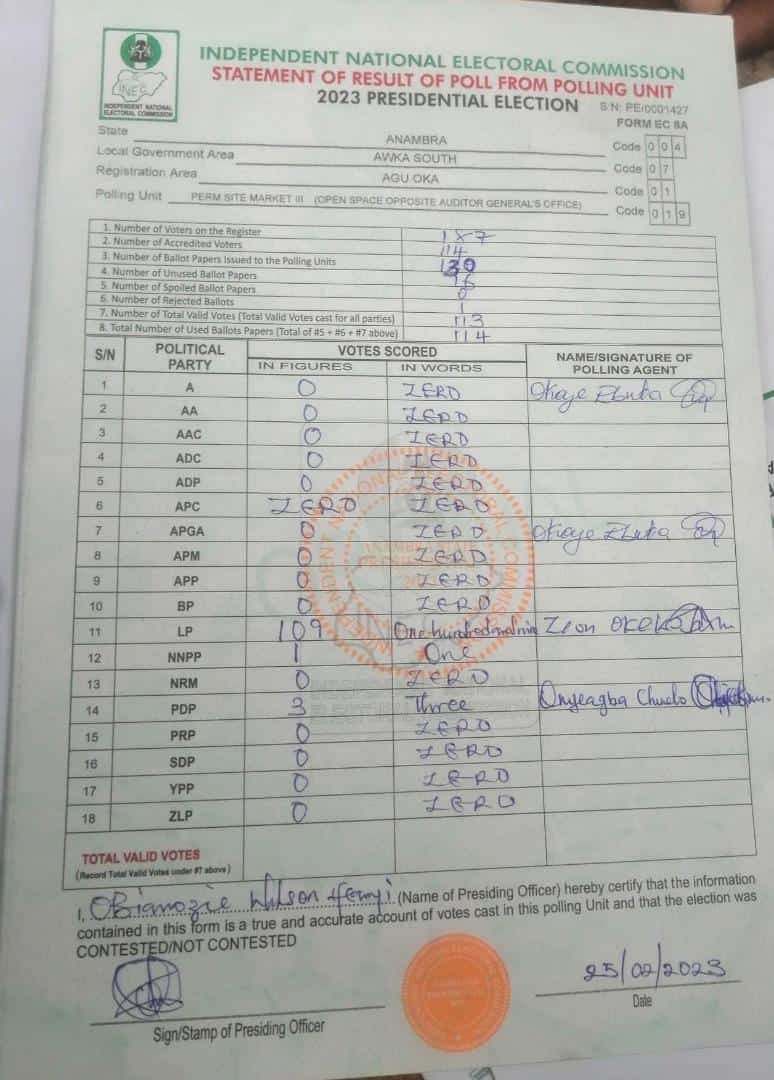 INDEPENDENT NATIONAL ELECTORAL COMMISSION
STATEMENT OF RESULT OF POLL FROM POLLING UNIT
2023 PRESIDENTIAL ELECTION S/N: PE/0001427
INEC
INDEPENDENT NATIONAL
ELECTORAL COMMISSION
FORM EC 8A
State ANAMBRA Code 0 0 4
Local Government Area AWKA SOUTH Code 0 7
Registration Area AGU OKA Code 0 1
Polling Unit PERM SITE MARKET III (OPEN SPACE OPPOSITE AUDITOR GENERAL'S OFFICE) Code 0 1 9
1. Number of Voters on the Register 187
2. Number of Accredited Voters 114
3. Number of Ballot Papers Issued to the Polling Units 130
4. Number of Unused Ballot Papers 16
5. Number of Spoiled Ballot Papers 0
6. Number of Rejected Ballots 1
7. Number of Total Valid Votes (Total Valid Votes cast for all parties) 113
8. Total Number of Used Ballots Papers (Total of #5 + #6 + #7 above) 114
S/N POLITICAL PARTY VOTES SCORED NAME/SIGNATURE OF POLLING AGENT
IN FIGURES IN WORDS
1 A 0 ZERO Okoye Ebuka
2 AA 0 ZERO
3 AAC 0 ZERO
4 ADC 0 ZERO
5 ADP 0 ZERO
6 APC ZERO ZERO
7 APGA 0 ZERO Okoye Ebuka
8 APM 0 ZERO
9 APP 0 ZERO
10 BP 0 ZERO
11 LP 109 One hundred and nine Zion OKEKE
12 NNPP 1 One
13 NRM 0 ZERO
14 PDP 3 Three Onyeagba Chudo
15 PRP 0 ZERO
16 SDP 0 ZERO
17 YPP 0 ZERO
18 ZLP 0 ZERO
TOTAL VALID VOTES
(Record Total Valid Votes under #7 above)
I, Obiamozie Wilson Ifeanyi (Name of Presiding Officer) hereby certify that the information
contained in this form is a true and accurate account of votes cast in this polling Unit and that the election was
CONTESTED/NOT CONTESTED
25/02/2023
Sign/Stamp of Presiding Officer Date